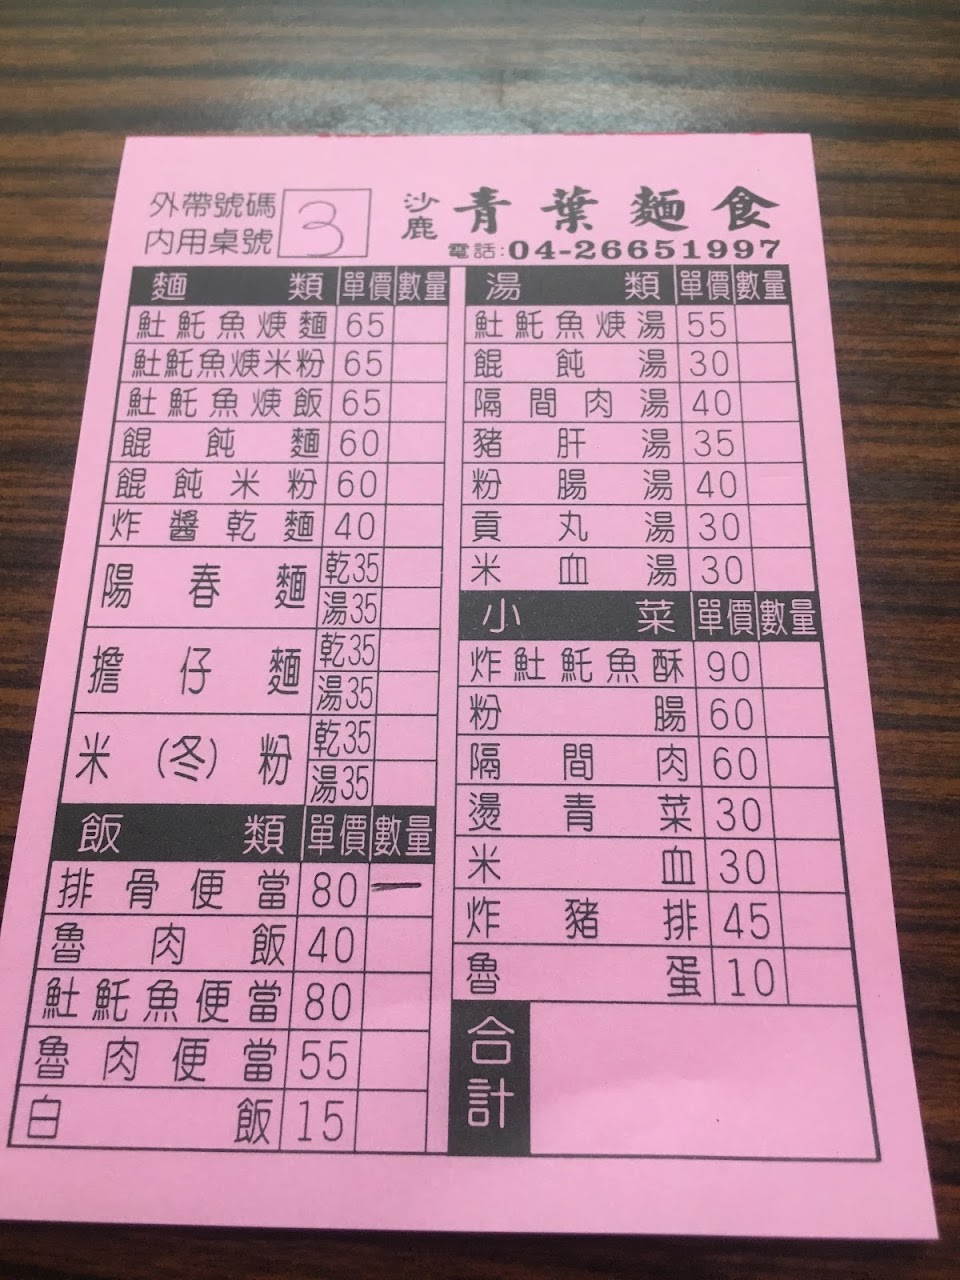 外帶號碼
內用桌號
3
沙鹿 青葉麵食
電話:04-26651997
麵類 單價 數量
𩵚魠魚焿麵 65
𩵚魠魚焿米粉 65
𩵚魠魚焿飯 65
餛飩麵 60
餛飩米粉 60
炸醬乾麵 40
陽春麵 乾35
湯35
擔仔麵 乾35
湯35
米(冬)粉 乾35
湯35
飯類 單價 數量
排骨便當 80 一
魯肉飯 40
𩵚魠魚便當 80
魯肉便當 55
白飯 15
湯類 單價 數量
𩵚魠魚焿湯 55
餛飩湯 30
隔間肉湯 40
豬肝湯 35
粉腸湯 40
貢丸湯 30
米血湯 30
小菜 單價 數量
炸𩵚魠魚酥 90
粉腸 60
隔間肉 60
燙青菜 30
米血 30
炸豬排 45
魯蛋 10
合計